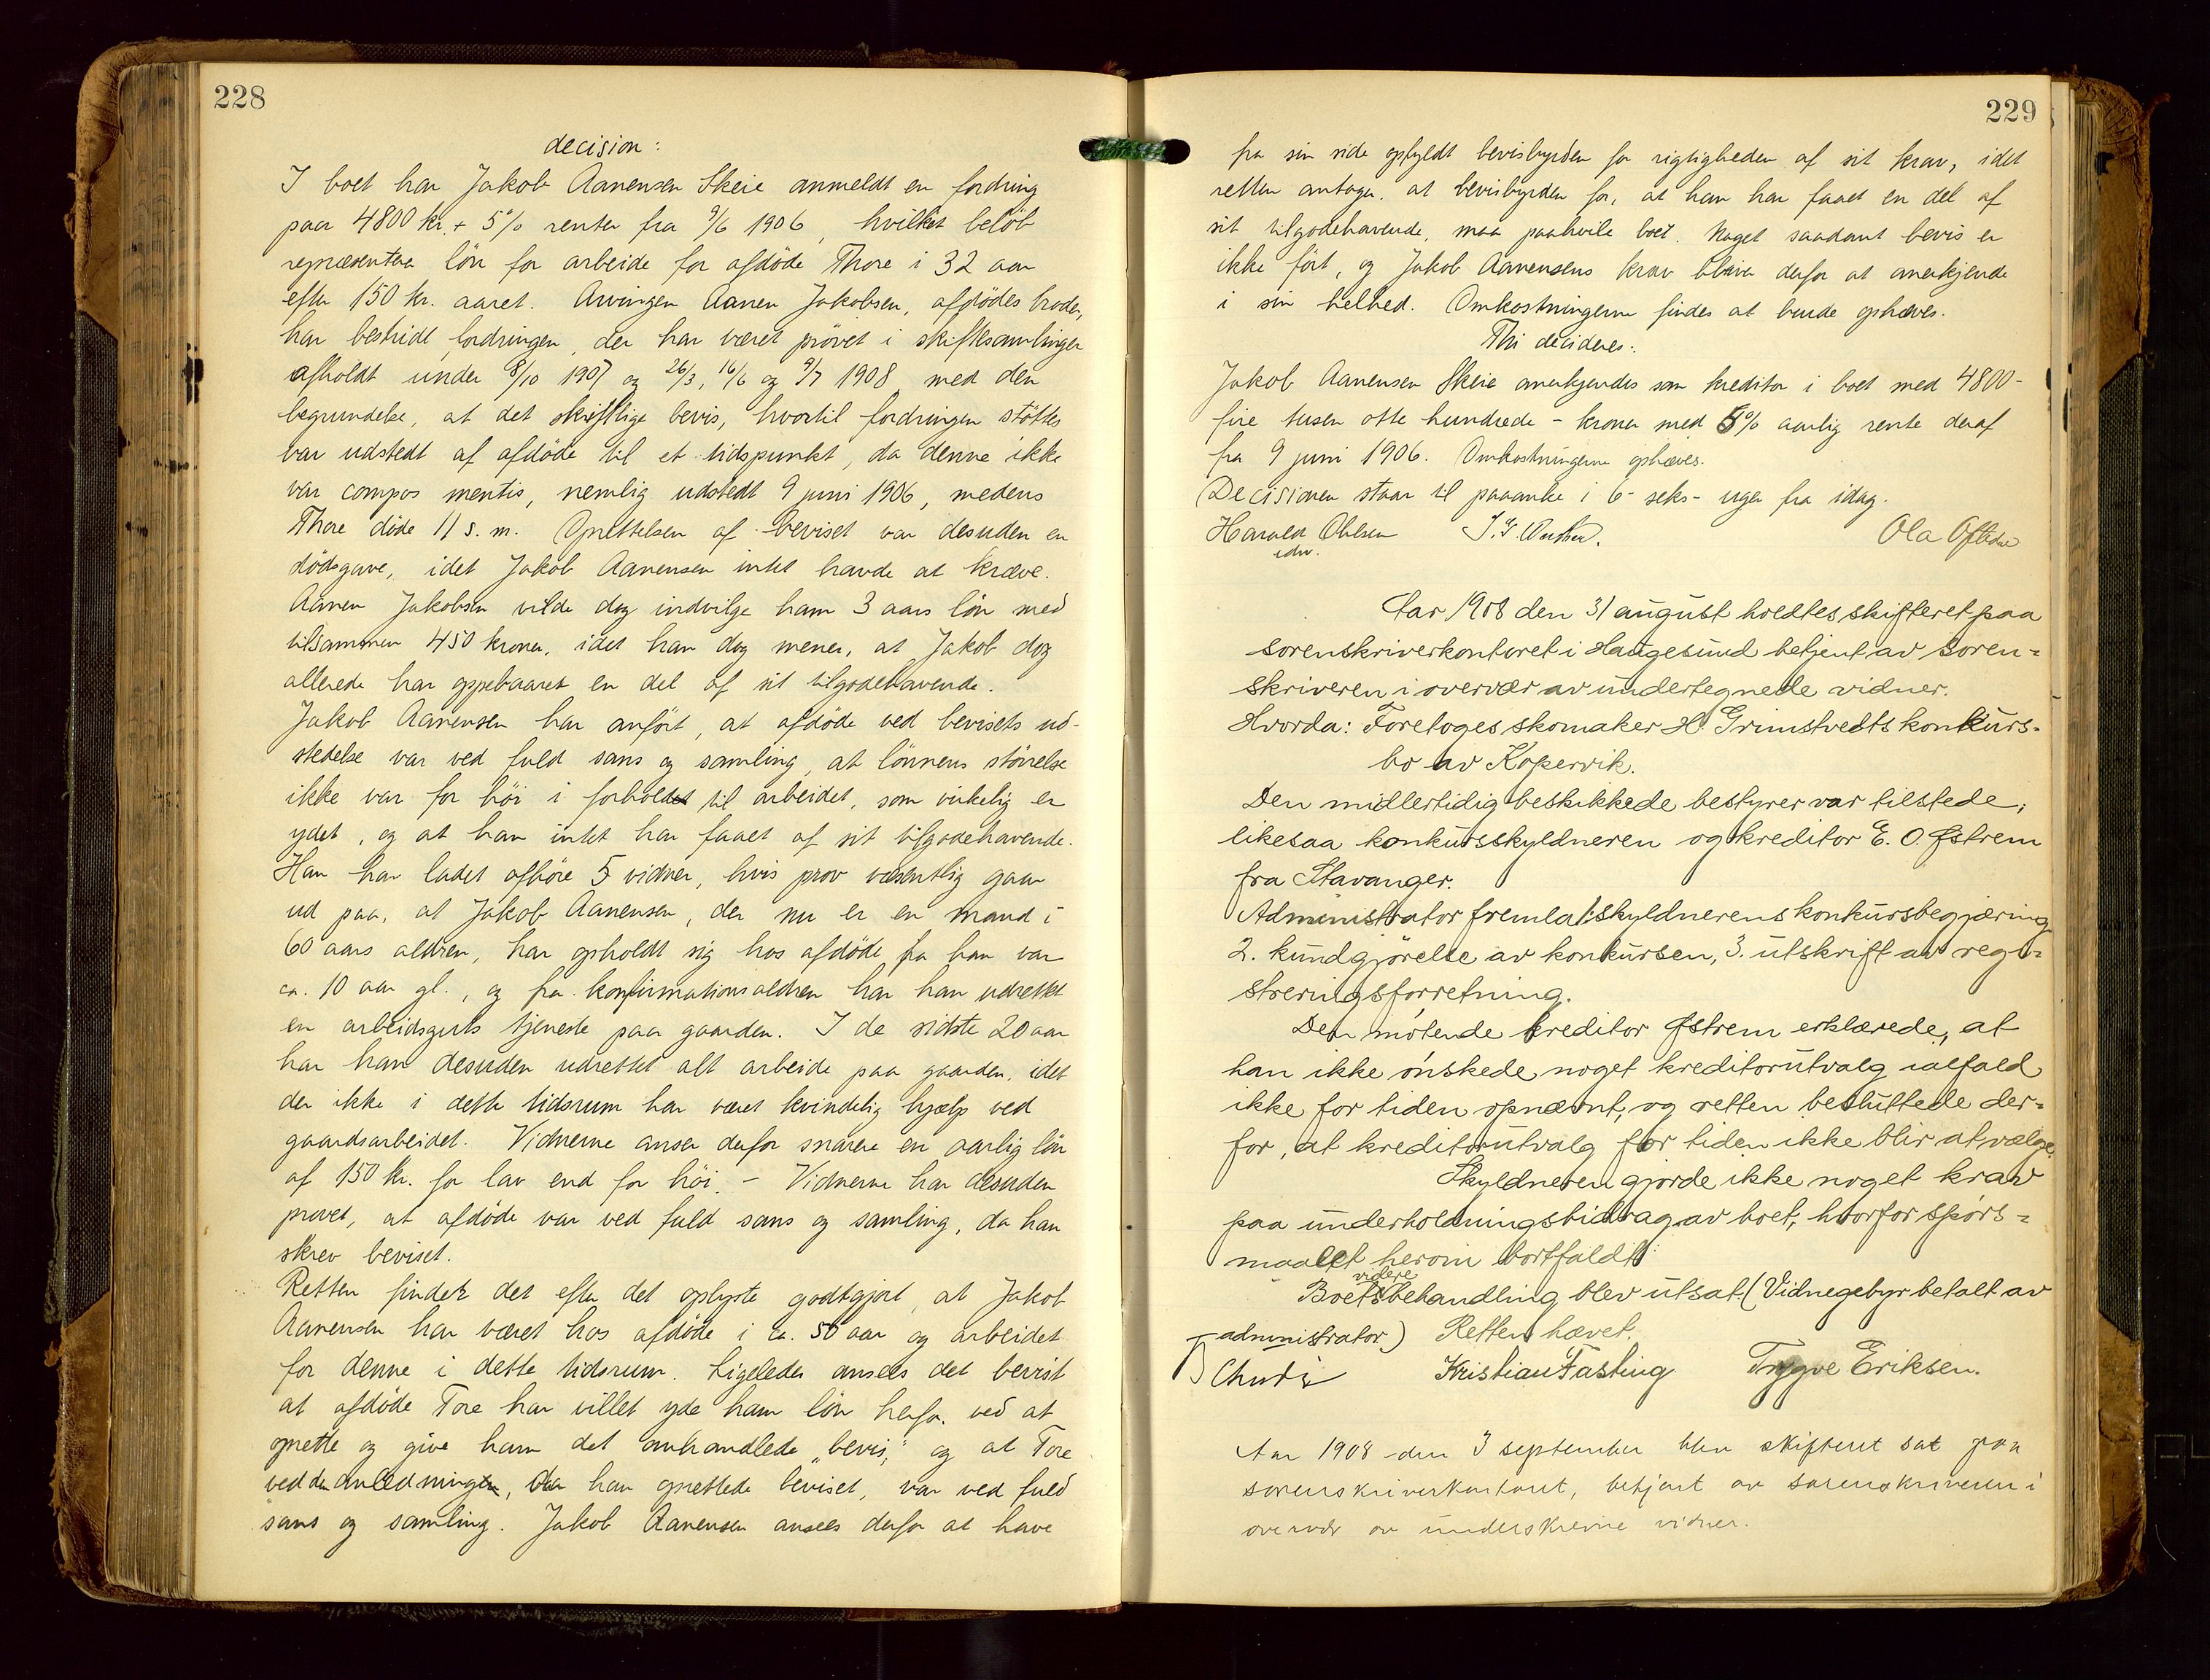 228
decision:
I boet har Jakob Aanensen Skeie anmeldt en fordring
paa 4800 kr. + 5% renter fra 9/6 1906, hvilket beløb
repræsenterer løn for arbeide for afdøde Thore i 32 aar
efter 150 kr. aaret. Arvingen Aanen Jakobsen, afdødes broder,
har bestridt fordringen, der har været prøvet i skiftesamlinger
afholdt under 8/10 1907 og 26/3, 16/6 og 9/7 1908 med den
begrundelse, at det skriftlige bevis, hvortil fordringen støttes
var udstedt af afdøde til et tidspunkt, da denne ikke
var compos mentis, nemlig udstedt 9 juni 1906, medens
Thore døde 11 s. m. Oprettelsen af beviset var desuden en
dødsgave, idet Jakob Aanensen intet havde at kræve.
Aanen Jakobsen vilde dog indvilge ham 3 aars løn med
tilsammen 450 kroner, idet han dog mener, at Jakob dog
allerede har oppebaaret en del af sit tilgodehavende.
Jakob Aanensen har anført, at afdøde ved bevisets ud-
stedelse var ved fuld sans og samling, at lønnens størrelse
ikke var for høi i forholdet til arbeidet, som virkelig er
ydet, og at han intet har faaet af sit tilgodehavende.
Han har ladet afhøre 5 vidner, hvis prov væsentlig gaar
ud paa, at Jakob Aanensen, der nu er en mand i
60 aars aldren, har opholdt sig hos afdøde fra han var
ca. 10 aar gl., og fra konfirmationsaldren har han udrettet
en arbeidsguts tjeneste paa gaarden. I de sidste 20 aar
har han desuden udrettet alt arbeide paa gaarden, idet
der ikke i dette tidsrum har været kvindelig hjælp ved
gaardsarbeidet. Vidnerne anser derfor snarere en aarlig løn
af 150 kr. for lav end for høi. – Vidnerne har desuden
provet, at afdøde var ved fuld sans og samling, da han
skrev beviset.
Retten finder det efter det oplyste godtgjort, at Jakob
Aanensen har været hos afdøde i ca. 50 aar og arbeidet
for denne i dette tidsrum. Ligeledes ansees det bevist
at afdøde Tore har villet yde ham løn herfor ved at
oprette og give ham det omhandlede „bevis," og at Tore
ved den anledningen, da han oprettede beviset, var ved fuld
sans og samling. Jakob Aanensen ansees derfor at have
229
fra sin side opfyldt bevisbyrden for rigtigheden af sit krav, idet
retten antager, at bevisbyrden for, at han har faaet en del af
sit tilgodehavende, maa paahvile boet. Noget saadant bevis er
ikke ført, og Jakob Aanensens krav bliver derfor at anerkjende
i sin helhed. Omkostningerne findes at burde ophæves.
Thi decideres:
Jakob Aanensen Skeie anerkjendes som kreditor i boet med 4800-
fire tusen otte hundrede - kroner med 5% aarlig rente deraf
fra 9 juni 1906. Omkostningerne ophæves.
Decisionen staar til paaanke i 6- seks- uger fra idag.
Harald Ohlsen Ola Oftedal
Aar 1908 den 31 august holdtes skifteret paa
sorenskriverkontoret i Haugesund betjent av soren-
skriveren i overvær av undertegnede vidner.
Hvorda: Foretoges skomaker H. Grimstvedts konkurs-
bo av Kopervik.
Den midlertidig beskikkede bestyrer var tilstede,
likesaa konkursskyldneren og kreditor E. O. Østrem
fra Stavanger.
Administrator fremla 1. skyldnerens konkursbegjæring
2. kundgjørelse av konkursen, 3. utskrift av regi-
streringsforretning.
Den møtende kreditor Østrem erklærede, at
han ikke ønskede noget kreditorutvalg ialfald
ikke for tiden opnævnt, og retten besluttede der-
for, at kreditorutvalg for tiden ikke blir at vælge.
Skyldneren gjorde ikke noget krav
paa underholdningsbidrag av boet, hvorfor spørs-
maalet herom bortfaldt.
Boets videre behandling blev utsat. (Vidnegebyr betalt av
administrator) Retten hævet.
Kristian Fasting Trygve Eriksen.
Aar 1908 den 3 september blev skifteret sat paa
sorenskriverkontoret, betjent av sorenskriveren i
overvær av underskrevne vidner.